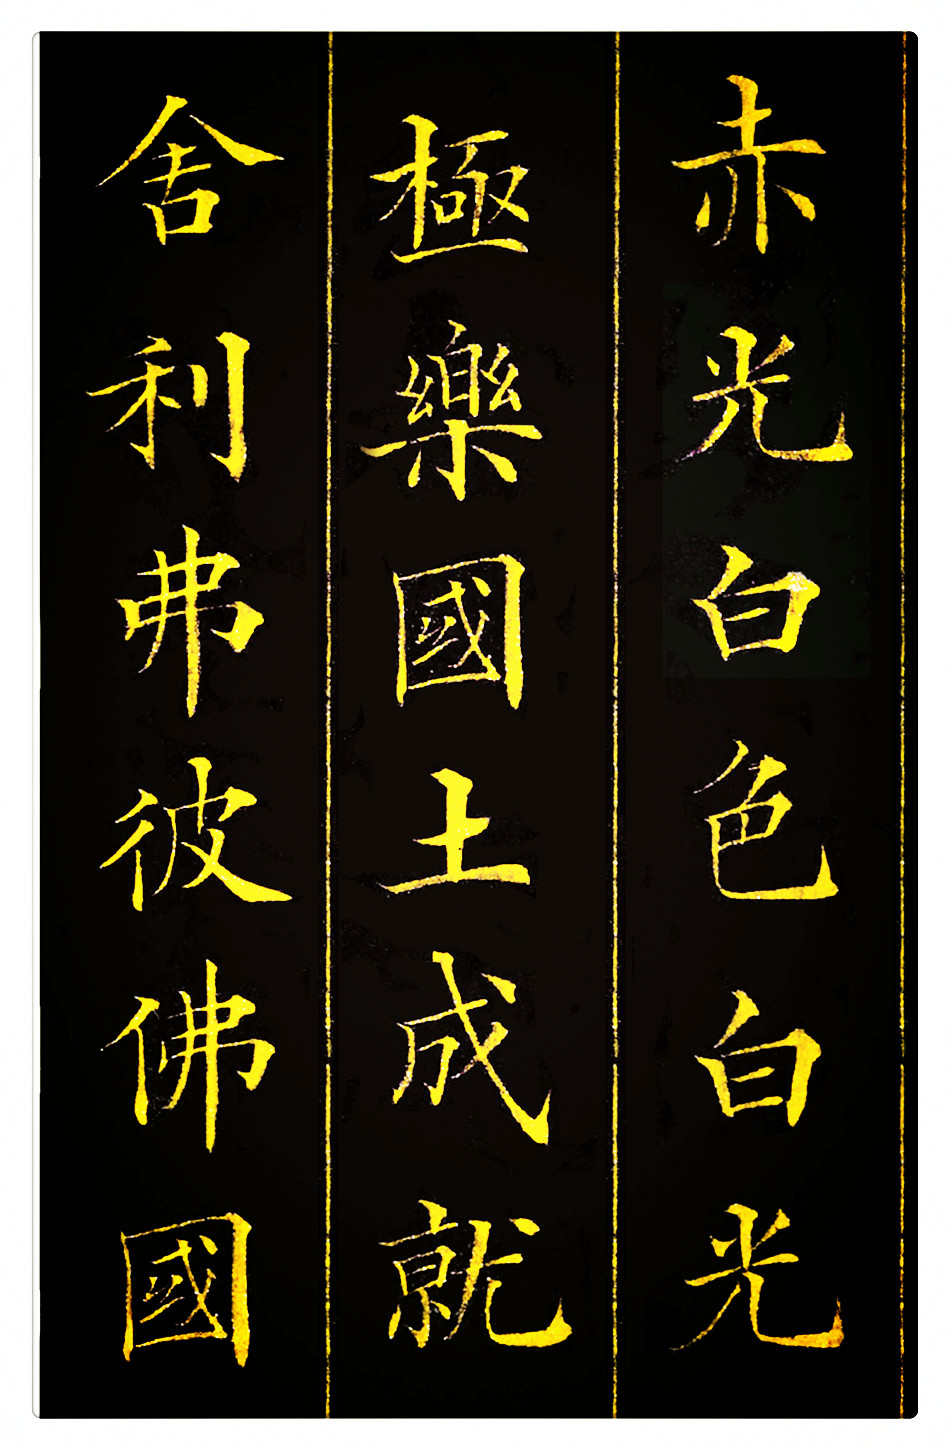 赤光白色白光
極樂國土成就
舍利弗彼佛國